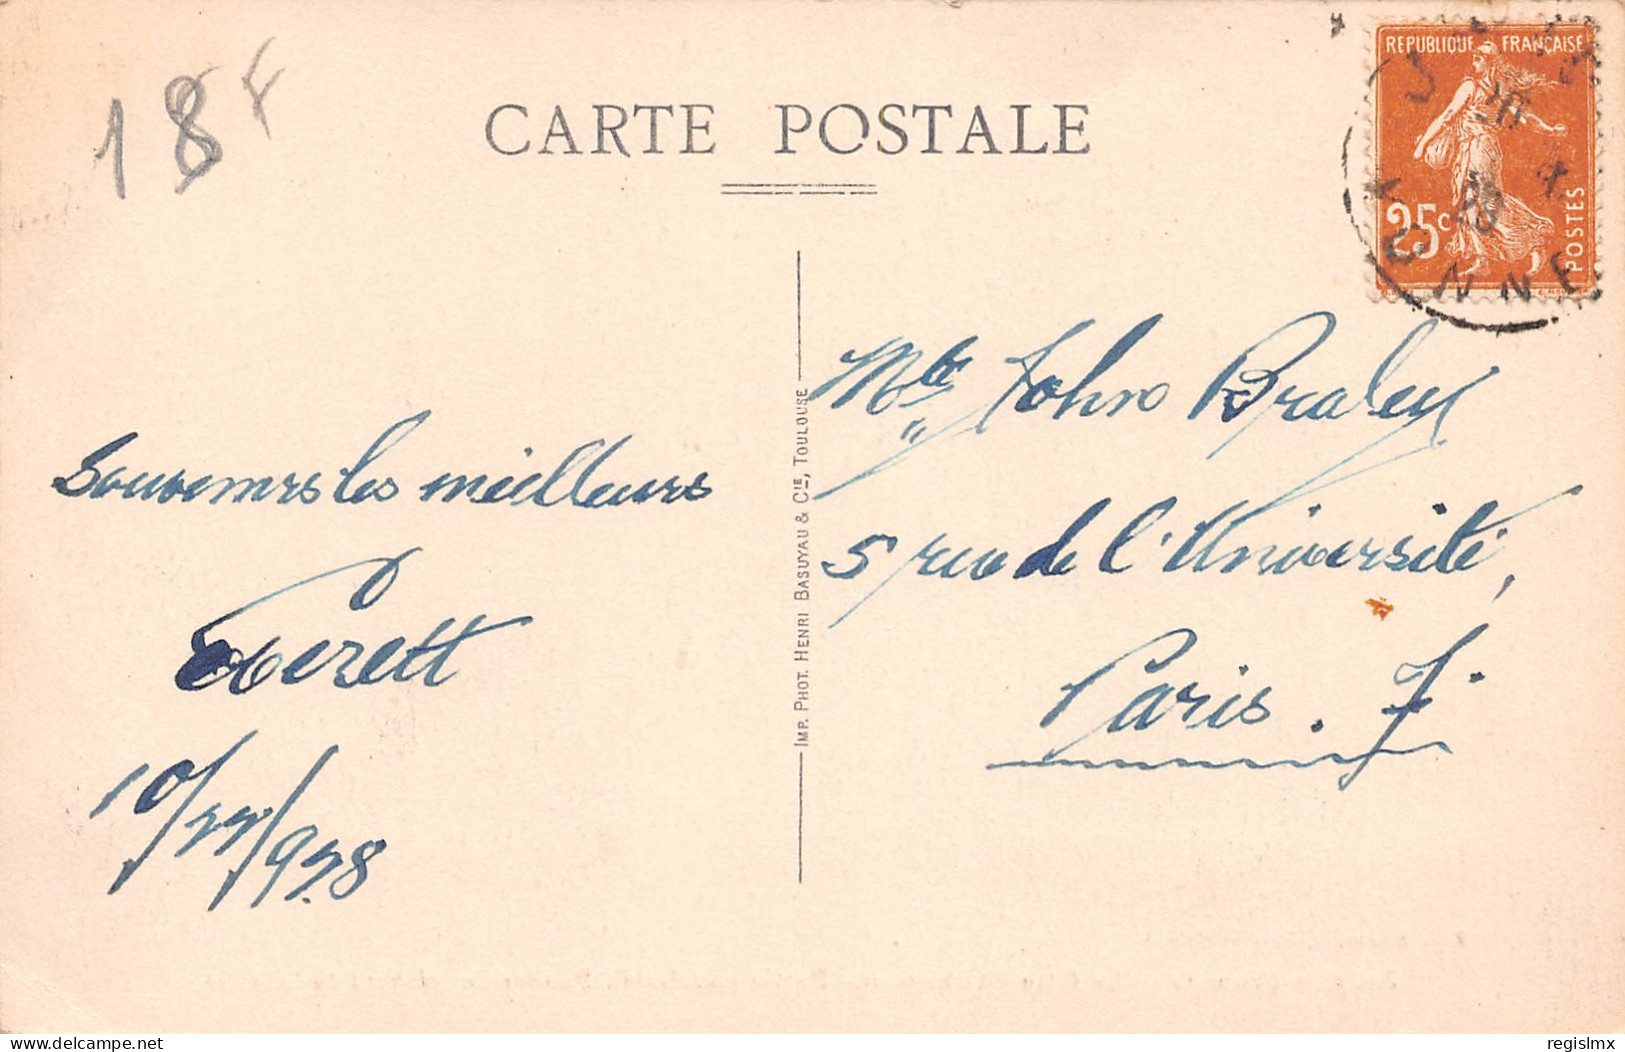 18F
CARTE POSTALE
REPUBLIQUE FRANÇAISE
25c
POSTES
Souvenirs les meilleurs
Everett
John Braley
5 rue de l'Université,
Paris. 7.
IMP. PHOT. HENRI BASUYAU & CIE, TOULOUSE
delcampe.net
regislmx